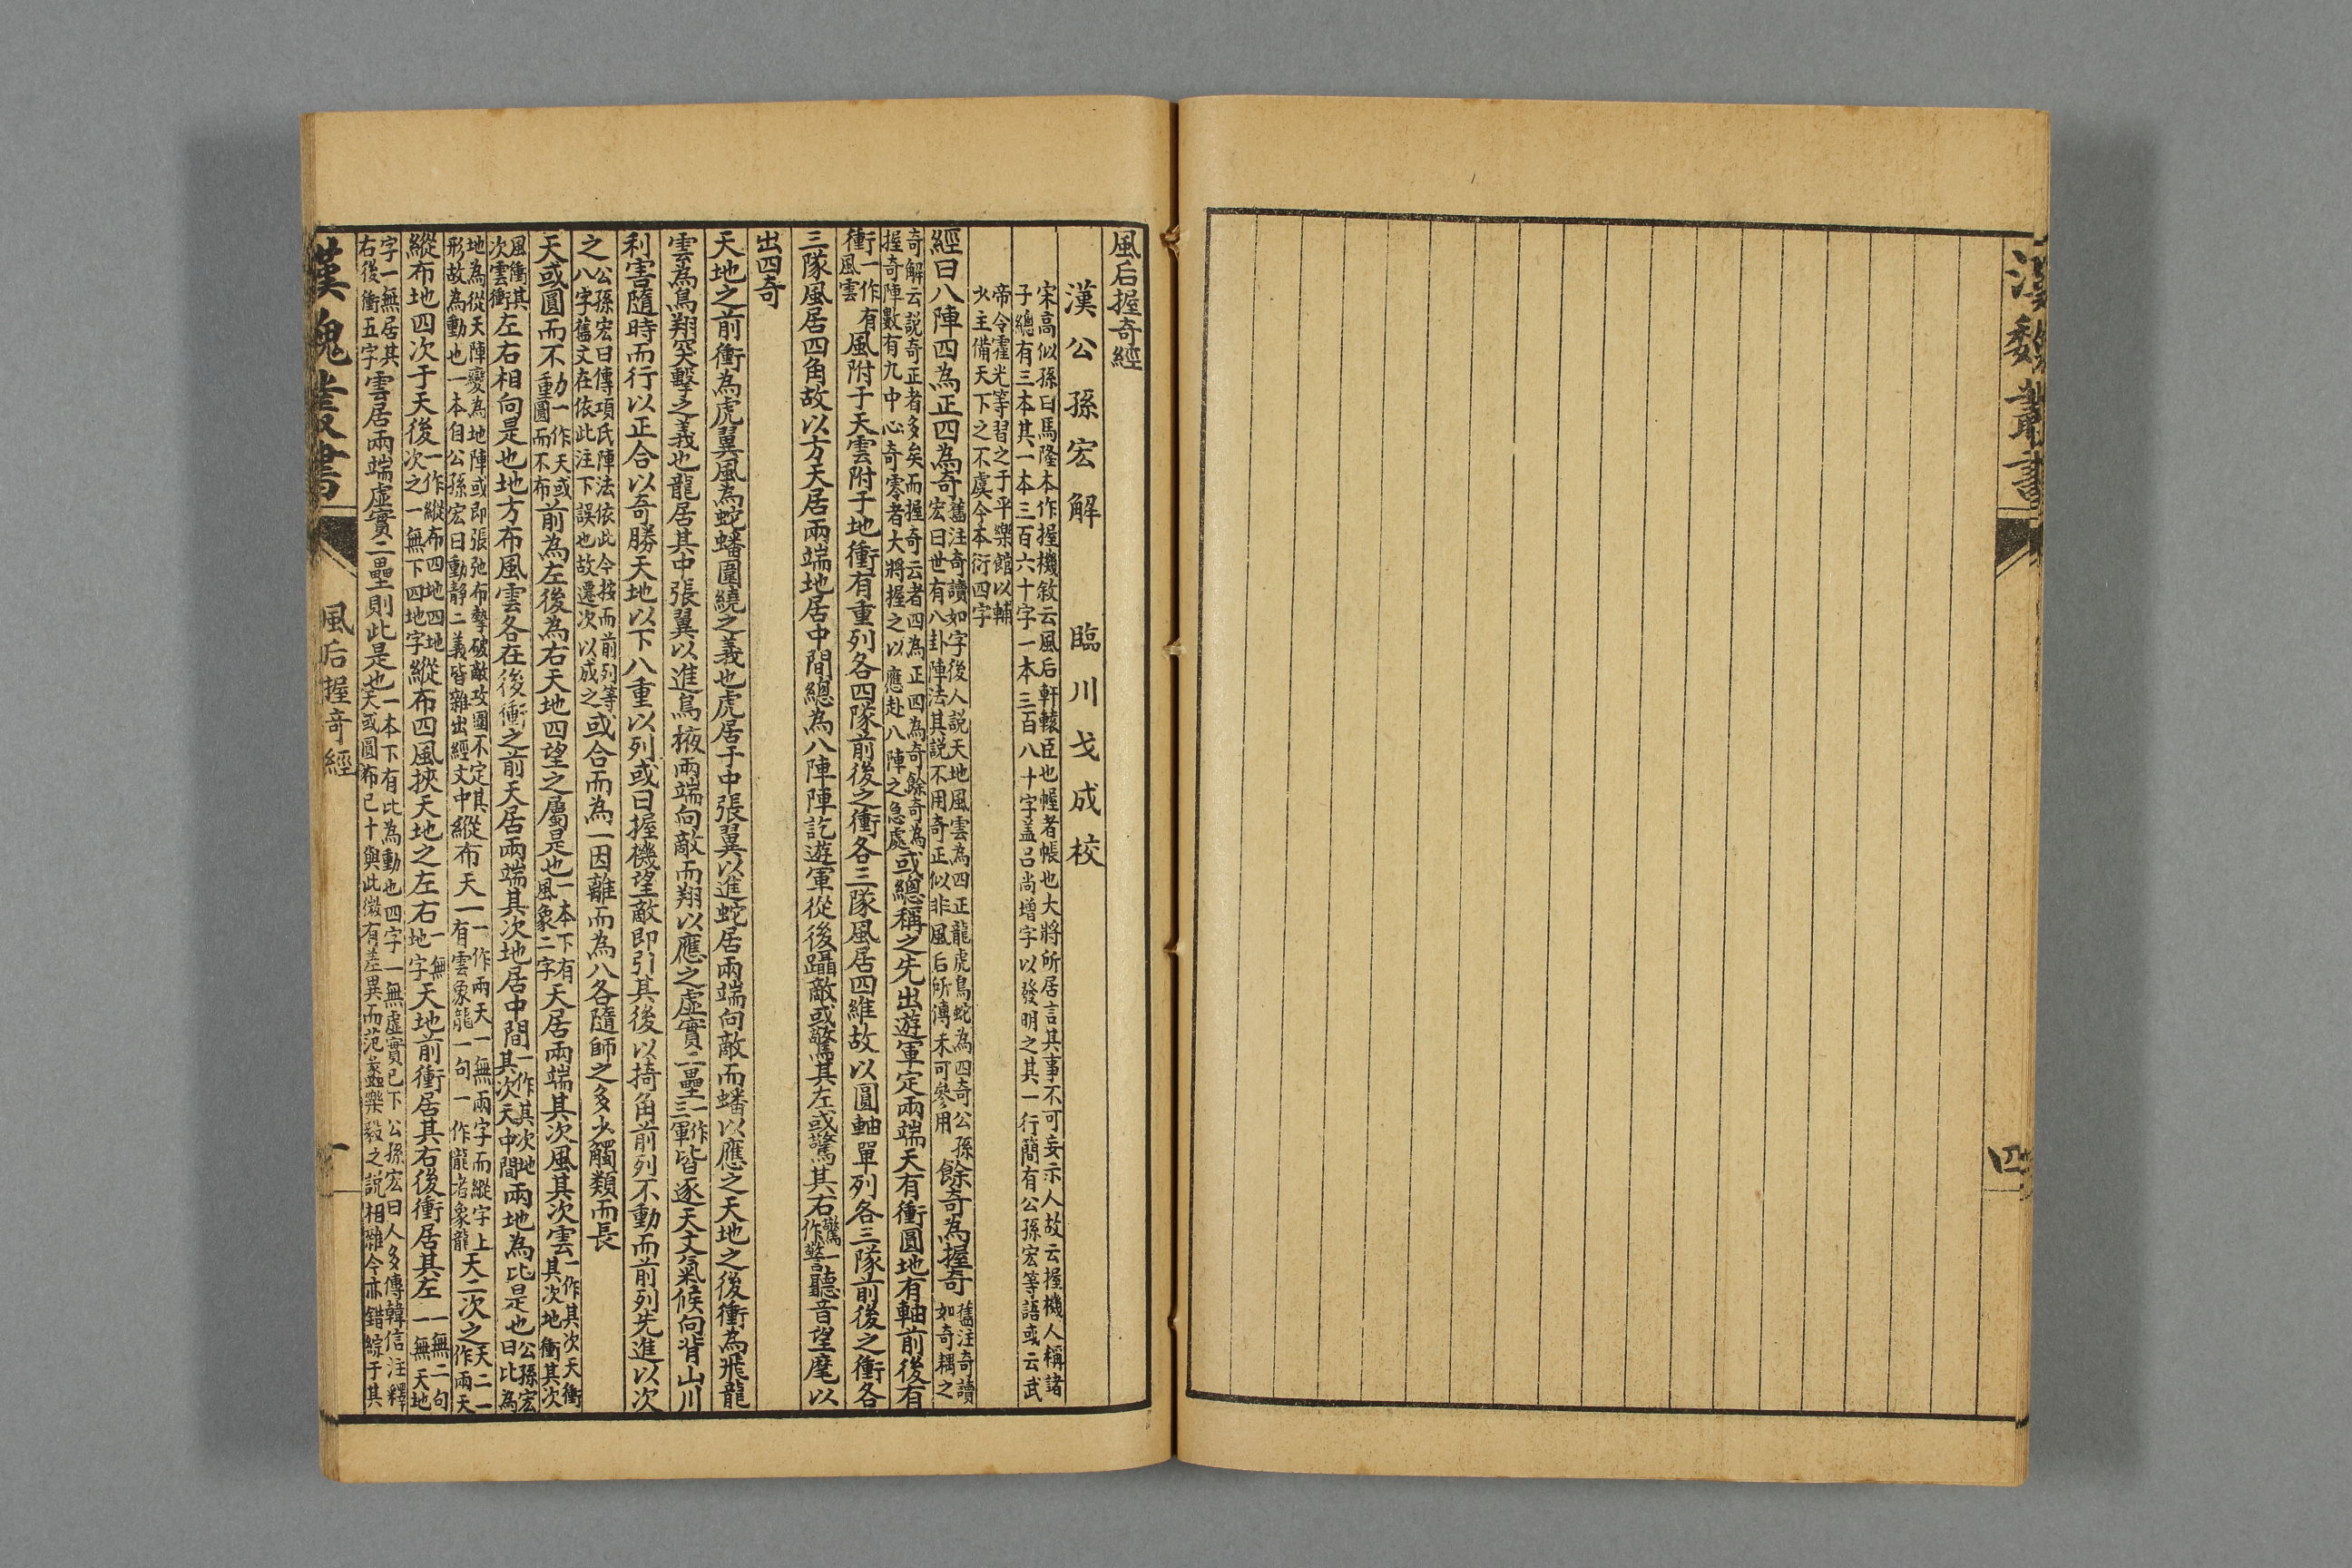 漢魏叢書
四
風后握奇經
漢公孫宏解　臨川戈成校
宋高似孫曰馬隆本作握機敘云風后軒轅臣也幄者帳也大將所居言其事不可妄示人故云握機人稱諸
子總有三本其一本三百六十字一本三百八十字盖呂尚增字以發明之其一行簡有公孫宏等語或云武
帝令霍光等習之于平樂館以輔
少主備天下之不虞今本衍四字
經曰八陣四為正四為奇舊注奇讀如字後人説天地風雲為四正龍虎鳥蛇為四奇公孫宏曰世有八卦陣法其説不用奇正似非風后所傳未可參用餘奇為握奇舊注奇讀如奇耦之
奇解云説奇正者多矣而握奇云者四為正四為奇餘奇為握奇陣數有九中心奇零者大將握之以應赴八陣之急處或總稱之先出遊軍定兩端天有衝圓地有軸前後有
衝一作有風雲風附于天雲附于地衝有重列各四隊前後之衝各三隊風居四維故以圓軸單列各三隊前後之衝各
三隊風居四角故以方天居兩端地居中間總為八陣陣訖遊軍從後躡敵或驚其左或驚其右驚一作警聽音望麾以
出四奇
天地之前衝為虎翼風為蛇蟠圍繞之義也虎居于中張翼以進蛇居兩端向敵而蟠以應之天地之後衝為飛龍
雲為鳥翔突擊之義也龍居其中張翼以進鳥掖兩端向敵而翔以應之虛實二壘一作三軍皆逐天文氣候向背山川
利害隨時而行以正合以奇勝天地以下八重以列或曰握機望敵即引其後以掎角前列不動而前列先進以次
之公孫宏曰傳項氏陣法依此今按而前列等八字舊文在依此注下誤也故遷次以成之或合而為一因離而為八各隨師之多少觸類而長
天或圓而不動一作天或重圓而不布前為左後為右天地四望之屬是也一本下有風象二字天居兩端其次風其次雲一作其次天衝其次地衝其次
風衝其次雲衝左右相向是也地方布風雲各在後衝之前天居兩端其次地居中間一作其次地其次天中間兩地為比是也公孫宏曰比為
地為從天陣變為地陣或即張弛布擊破敵攻圍不定其形故為動也一本自公孫宏曰動静二義皆雜出經文中縱布天一一作兩天一無兩字而縱字上有雲象龍一句一作龍者象龍天二次之天二一作兩天
縱布地四次于天後一作縱布四地四地次之一無下四地字縱布四風挾天地之左右一無地字天地前衝居其右後衝居其左一無二句一無天地
字一無居其右後衝五字雲居兩端虛實二壘則此是也一本下有此為動也四字一無虛實已下公孫宏曰人多傳韓信注釋天或圓布已十與此微有差異而范蠡樂毅之説相雜今亦錯綜于其
漢魏叢書　風后握奇經　一